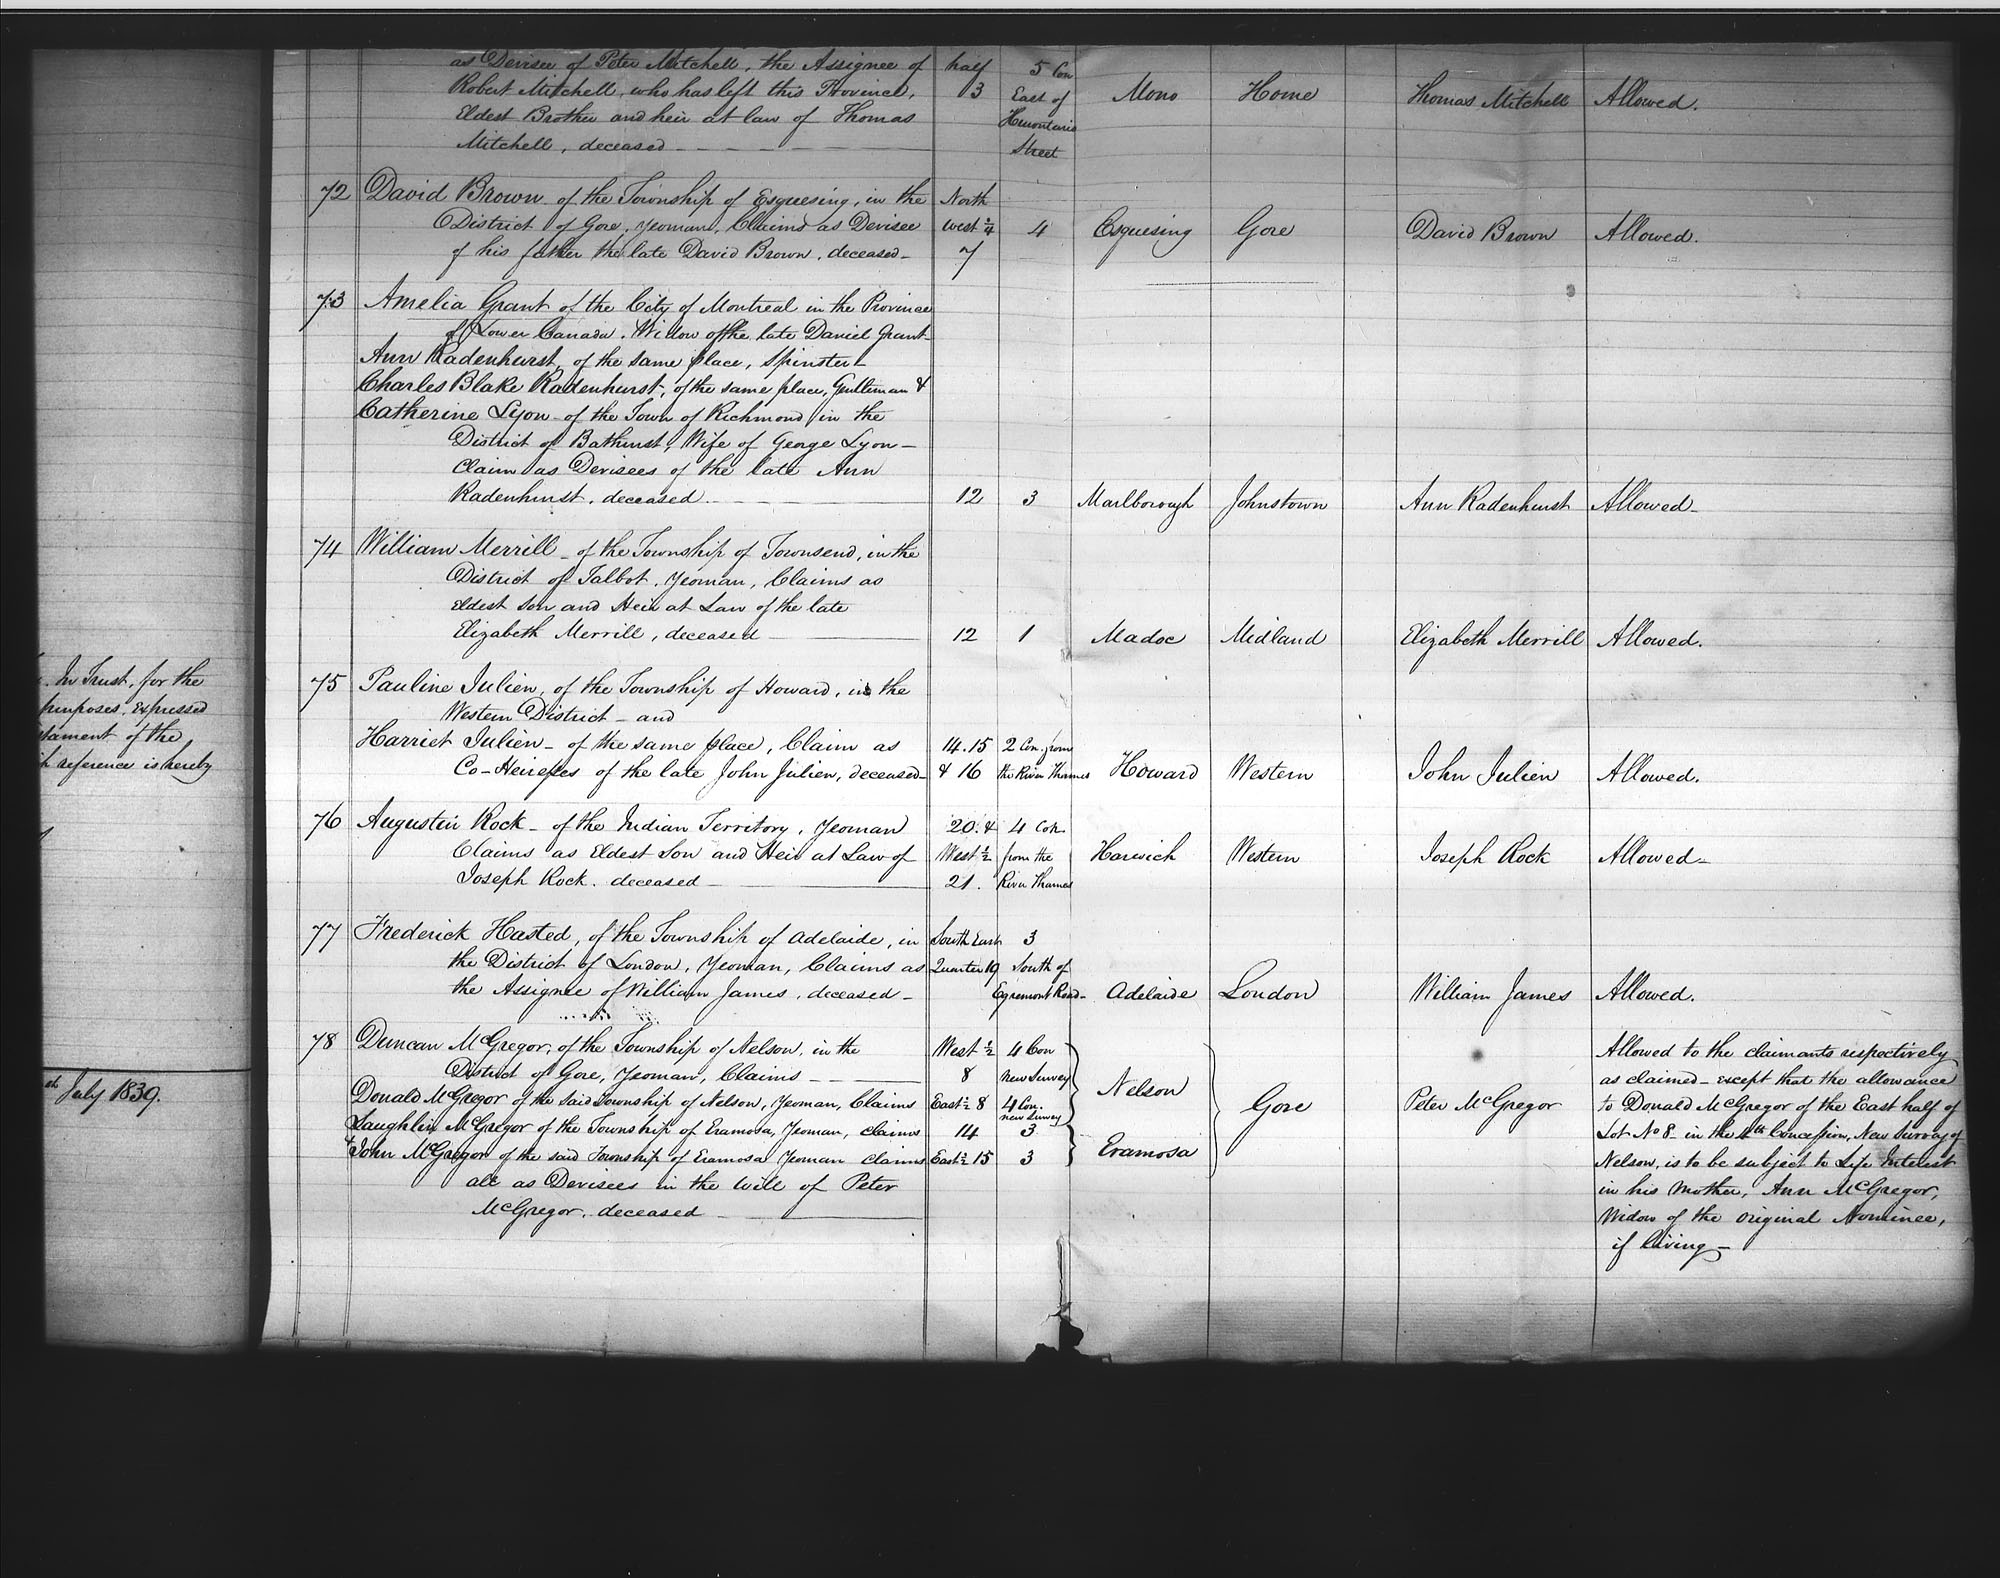 . In Trust, for the
purposes, expressed
tament of the,
reference is hereby
July 1839.
as Devisee of Peter Mitchell, the Assignee of half 5 Con
Robert Mitchell, who has left this Province, 3 East of Mono Home Thomas Mitchell Allowed.
Eldest Brother and heir at law of Thomas Hurontario
Mitchell, deceased Street
72 David Brown of the Township of Esquesing, in the North
District of Gore, Yeoman, Claims as Devisee West ¼ 4 Esquesing Gore David Brown Allowed.
of his father the late David Brown, deceased 7
73 Amelia Grant of the City of Montreal in the Province
of Lower Canada, Widow of the late Daniel Grant
Ann Radenhurst, of the same place, Spinster
Charles Blake Radenhurst, of the same place, Gentleman &
Catherine Lyon of the Town of Richmond in the
District of Bathurst, Wife of George Lyon
Claim as Devisees of the late Ann
Radenhurst, deceased 12 3 Marlborough Johnstown Ann Radenhurst Allowed
74 William Merrill of the Township of Townsend, in the
District of Talbot, Yeoman, Claims as
Eldest Son and Heir at Law of the late
Elizabeth Merrill, deceased 12 1 Madoc Midland Elizabeth Merrill Allowed.
75 Pauline Julien, of the Township of Howard, in the
Western District and
Harriet Julien of the same place, Claim as 14.15 2 Con. from
Co-Heiresses of the late John Julien, deceased & 16 the River Thames Howard Western John Julien Allowed.
76 Augustin Rock of the Indian Territory, Yeoman 20. & 4 Con.
Claims as Eldest Son and Heir at Law of West ½ from the Harwich Western Joseph Rock Allowed
Joseph Rock. deceased 21. River Thames
77 Frederick Hasted, of the Township of Adelaide, in South East 3
the District of London, Yeoman, Claims as Quarter 19 South of
the Assignee of William James, deceased Egremont Road Adelaide London William James Allowed.
78 Duncan McGregor, of the Township of Nelson, in the West ½ 4 Con Allowed to the claimants respectively
District of Gore, Yeoman, Claims 8 new Survey Nelson as claimed - except that the allowance
Donald McGregor of the said Township of Nelson, Yeoman, Claims East ½ 8 4 Con. new Survey Gore Peter McGregor to Donald McGregor of the East half of
Laughlin McGregor of the Township of Eramosa, Yeoman, claims 14 3 Lot No 8 in the 4th Concession, New Survey of
& John McGregor of the said Township of Eramosa Yeoman claims East ½ 15 3 Eramosa Nelson, is to be subject to Life Interest
all as Devisees in the Will of Peter in his Mother, Ann McGregor,
McGregor, deceased Widow of the original Nominee,
if living